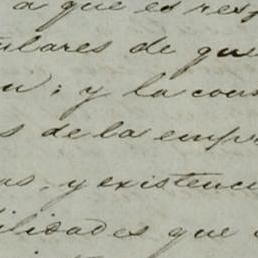 a que es res
tulares de que
n; y la cons
s de la empr
as, y existenci
ilidades que